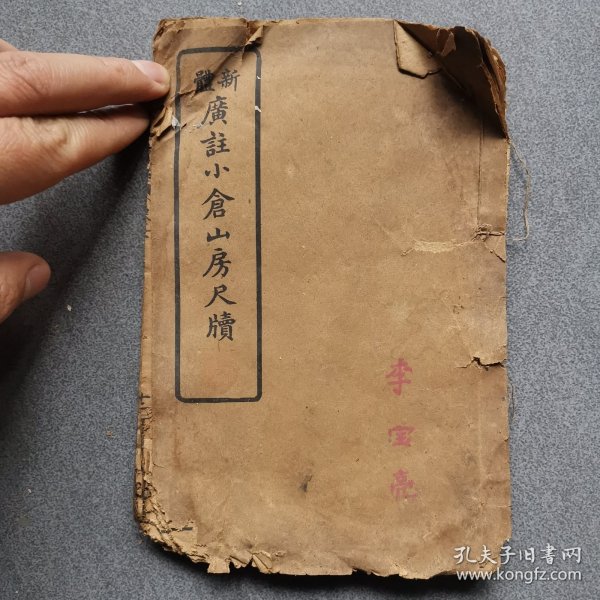 新體
廣註小倉山房尺牘
李宝亮
孔夫子旧书网
www.kongfz.com